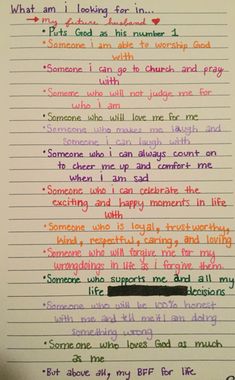 What am i looking for in...
→ my future husband ♥
• Puts God as his number 1
• Someone i am able to worship God
with
• Someone i can go to church and pray
with
• Someone who will not judge me for
who i am
• Someone who will love me for me
• Someone who makes me laugh and
Someone i can laugh with
• Someone who i can always count on
to cheer me up and comfort me
when i am sad
• Someone who i can celebrate the
exciting and happy moments in life
with
• Someone who is loyal, trustworthy,
kind, respectful, caring, and loving
• Someone who will forgive me for my
wrongdoings in life as i forgive them
• Someone who supports me and all my
life decisions
• Someone who will be 100% honest
with me and tell me if i am doing
something wrong
• Someone who loves God as much
as me
• But above all, my BFF for life.